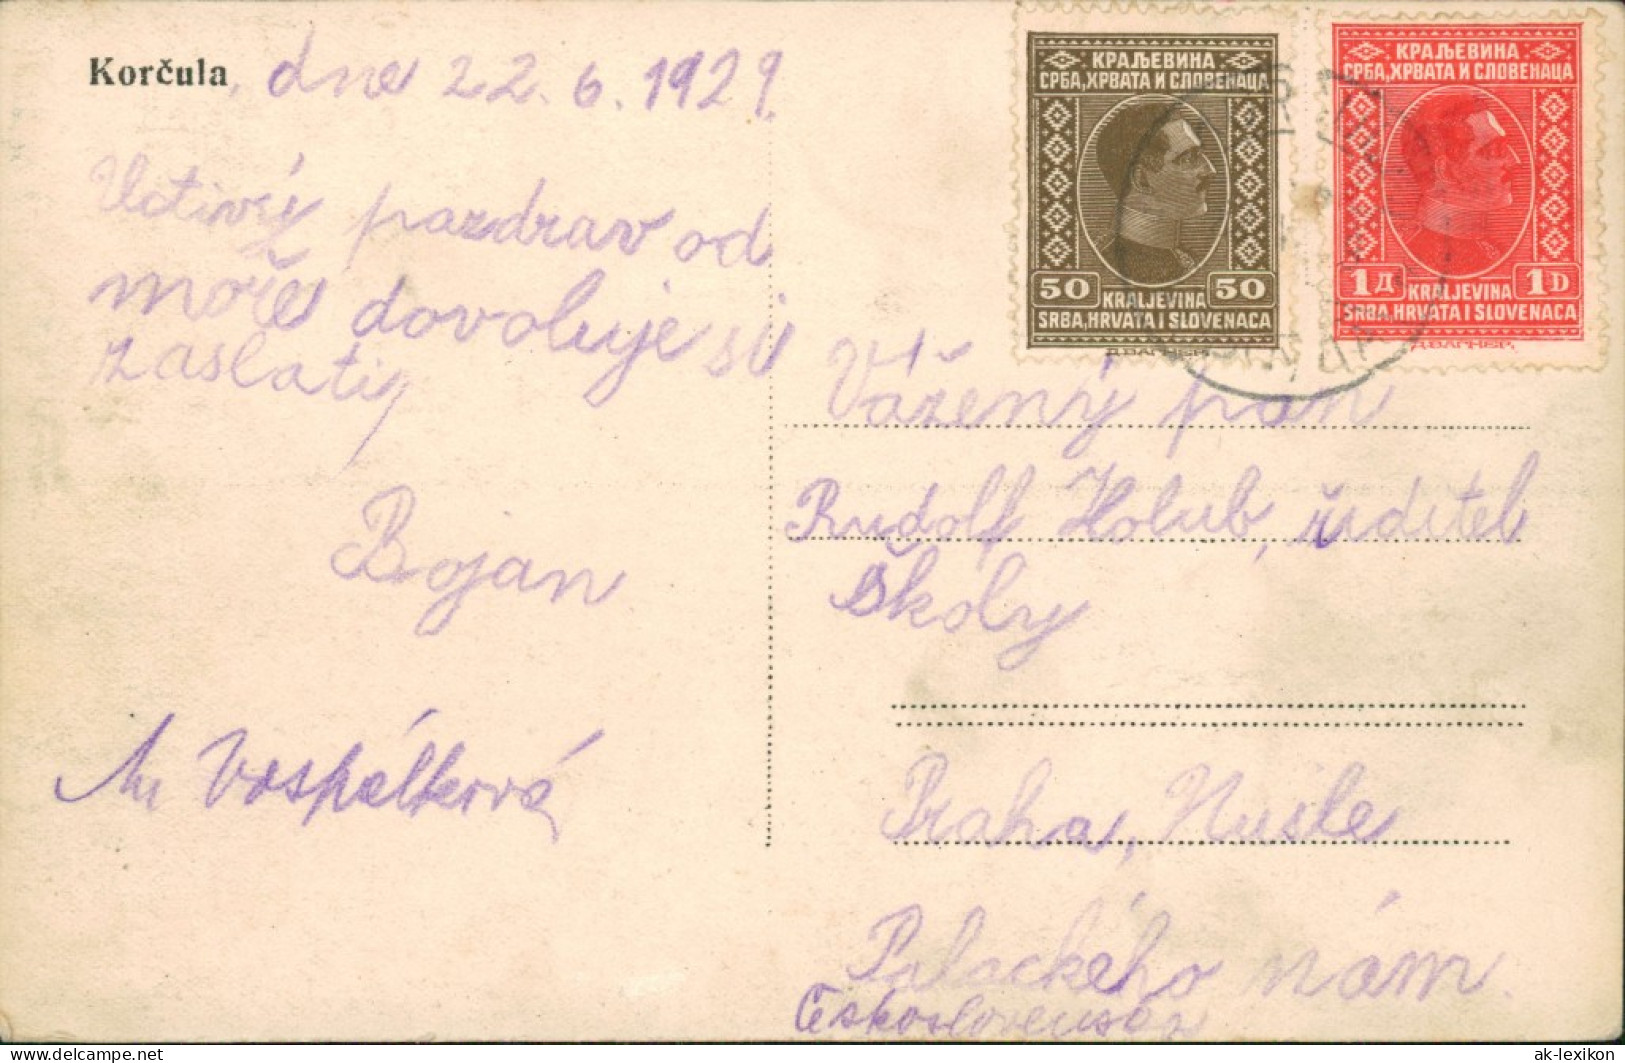 Korčula, dne 22. 6. 1929.
Uctivý pozdrav od
moře dovoluje si
zaslati,
Bojan
Vospálková
КРАЉЕВИНА
СРБА, ХРВАТА И СЛОВЕНАЦА
50 50
KRALJEVINA
SRBA, HRVATA I SLOVENACA
Д.ВАГНЕР.
КРАЉЕВИНА
СРБА, ХРВАТА И СЛОВЕНАЦА
1Д 1D
KRALJEVINA
SRBA, HRVATA I SLOVENACA
Д.ВАГНЕР.
Vážený pán
Rudolf Holub, řiditel
školy
Praha, Nusle
Palackého nám.
Československo
delcampe.net
ak-lexikon